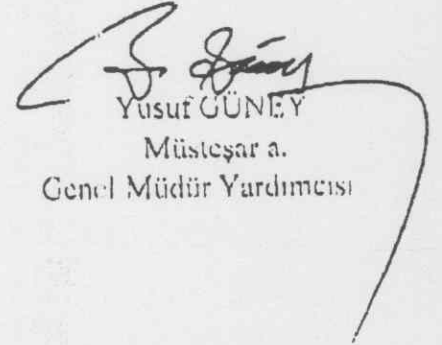 Yusuf GÜNEY
Müsteşar a.
Genel Müdür Yardımcısı